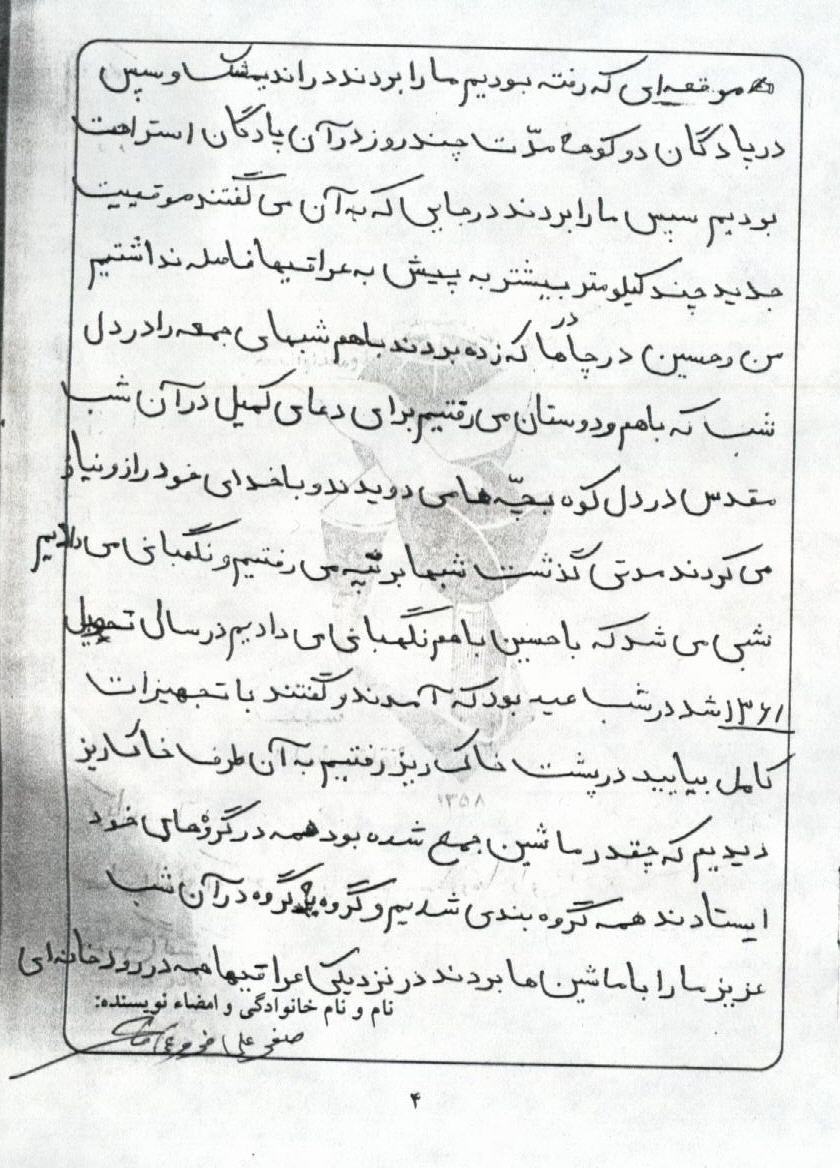 موقعه‌ای که رفته بودیم ما را بردند در اندیمشک و سپس
در پادگان دو کوهه مدّت چند روز در آن پادگان استراحت
بودیم سپس ما را بردند در جایی که به آن می گفتند موقعیت
جدید چند کیلومتر بیشتر به پیش به عراقیها فاصله نداشتیم
من و حسین در چادرها که زده بودند باهم شبهای جمعه را در دل
شب که باهم و دوستان می رفتیم برای دعای کمیل در آن شب
مقدس در دل کوه بچّه ها می دویدند و با خدای خود راز و نیاز
می کردند مدتی گذشت شبها بر تپه می رفتیم و نگهبانی می دادیم
شبی می شد که با حسین باهم نگهبانی می دادیم در سال تحویل
۱۳۶۱ شد در شب عید بود که آمدند و گفتند با تجهیزات
کامل بیایید در پشت خاک ریز رفتیم به آن طرف خاکریز
دیدیم که چقدر ماشین جمع شده بود همه در گروههای خود
ایستادند همه گروه بندی شدیم و گروه گروه در آن شب
عزیز ما را با ماشین ها بردند در نزدیکی عراقیها همه در رودخانه‌ای
نام و نام خانوادگی و امضاء نویسنده:
صفی علی
۴
۱۳۵۸